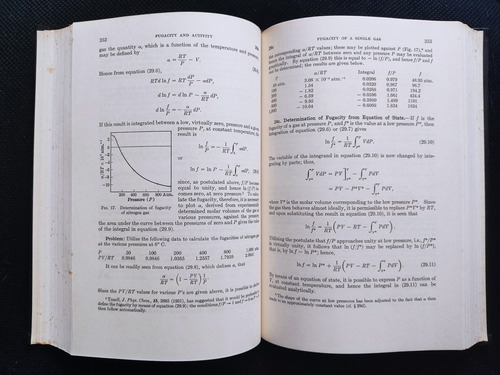 252 FUGACITY AND ACTIVITY
gas the quantity α, which is a function of the temperature and pressure,
may be defined by
α = RT/P − V.
Hence from equation (29.6),
RTd ln f = RT dP/P − αdP,
d ln f = d ln P − α/RT dP,
d ln f/P = − α/RT dP.
If this result is integrated between a low, virtually zero, pressure and a given
pressure P, at constant temperature, the
result is
ln f/P = − 1/RT ∫ αdP,
or
ln f = ln P − 1/RT ∫ αdP,
since, as postulated above, f/P becomes
equal to unity, and hence ln (f/P) becomes
zero, at zero pressure.
late the fugacity, therefore, it is necessary
to plot α, derived from experimentally
determined molar volumes of the gas at
various pressures, against the pressure;
the area under the curve between the pressures of zero and P gives the value
of the integral in equation (29.9).
α/RT × 10⁴ atm.⁻¹
200 400 600 800 Atm.
Pressure (P)
FIG. 17. Determination of fugacity
of nitrogen gas
Problem: Utilize the following data to calculate the fugacities of nitrogen gas
at the various pressures at 0° C.
P 50 100 200 400 800 1,000 atm.
PV/RT 0.9846 0.9846 1.0365 1.2557 1.7959
It can be readily seen from equation (29.8), which defines α, that
α/RT = (1 − PV/RT) 1/P
Since the PV/RT values for various P's are given above, it is possible to
Tunell, J. Phys. Chem., 35, 2885 (1931), has suggested that it would be preferable
define the fugacity by means of equation (29.9); the conditions f/P → 1 and f → P as P → 0
then follow automatically.
29c FUGACITY OF A SINGLE GAS 253
the corresponding α/RT values; these may be plotted against P (Fig. 17),* and
the integral between zero and any pressure P may be evaluated
graphically. By equation (29.9) this is equal to − ln (f/P), and hence f/P and f
can be determined; the results are given below.
P α/RT Integral f/P f
50 atm. 3.08 × 10⁻⁴ atm.⁻¹ 0.0206 0.979 48.95 atm.
100 1.54 0.0320 0.967 96.7
200 − 1.82 0.0288 0.971 194.2
400 − 6.39 − 0.0596 1.061 424.4
800 − 9.95 1.489 1191
1,000 − 10.64 1.834 1834
29c. Determination of Fugacity from Equation of State.—If f is the
fugacity of a gas at pressure P, and f* is the value at a low pressure P*, then
integration of equation (29.6) or (29.7) gives
ln f/f* = 1/RT ∫ VdP. (29.10)
The variable of the integrand in equation (29.10) is now changed by integrating
by parts; thus,
∫ VdP = PV − ∫ PdV
= PV − P*V* − ∫ PdV,
where V* is the molar volume corresponding to the low pressure P*. Since
the gas then behaves almost ideally, it is permissible to replace P*V* by RT,
and upon substituting the result in equation (29.10), it is seen that
ln f/f* = 1/RT (PV − RT − ∫ PdV).
Utilizing the postulate that f/P approaches unity at low pressure, i.e., f*/P*
is virtually unity, it follows that ln (f/f*) may be replaced by ln (f/P*),
that is, by ln f − ln P*; hence,
ln f = ln P* + 1/RT (PV − RT − ∫ PdV). (29.11)
By means of an equation of state, it is possible to express P as a function of
V, at constant temperature, and hence the integral in (29.11) can be
evaluated analytically.
* The shape of the curve at low pressures has been adjusted to the fact that α then
tends to an approximately constant value